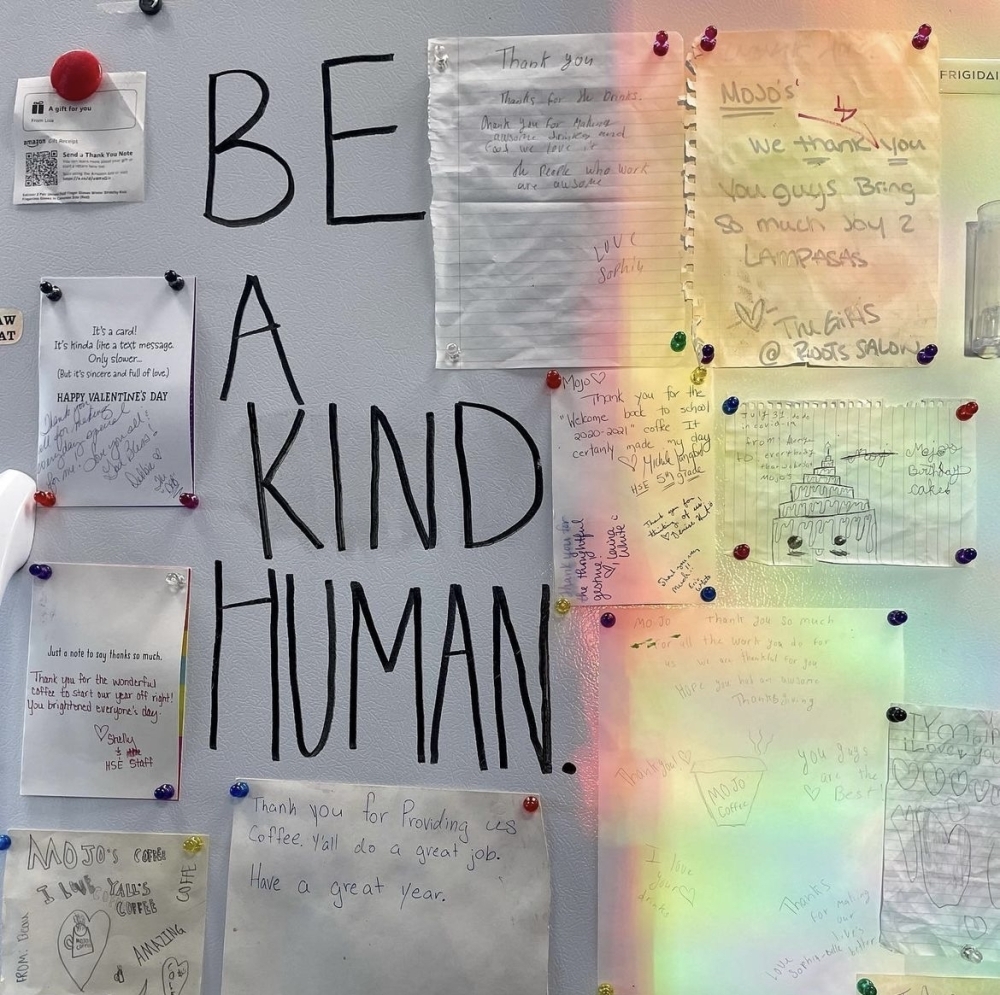 BE
A
KIND
HUMAN.
A gift for you
From Lola
amazon Gift Receipt
Send a Thank You Note
FRIGIDAI
AW
AT
Thank you
Thanks for the Drinks.
Thank you for Making
awsome drinks and
food we love it
the People who work
are awsome
LOVE
Sophia
MOJO's'
We thank you
You guys Bring
So much Joy 2
LAMPASAS
The GiRlS
@ ROOTS SALON
It's a card!
It's kinda like a text message.
Only slower...
(But it's sincere and full of love.)
HAPPY VALENTINE'S DAY
Thank you
all for making
everyday special
for me. Love you all!
Debbie
Mojo
Thank you for the
"Welcome back to school
2020-2021" coffee. It
certainly made my day
HSE 5th grade
Thank you for
thinking of us!
Thank you for
the thoughtful
gesture
Laura
White
Thank you very
much!!
July 31
from
to everybody
Mojos
Birthday
cake
Just a note to say thanks so much.
Thank you for the wonderful
coffee to start our year off right!
You brightened everyone's day.
Shelly
HSE Staff
MO-JO Thank you so much
for all the work you do for
us. We are thankful for you
Hope you had an awsome
Thanksgiving
Thankyou!
MOJO
Coffee
you guys
are the
Best!
I love
your
drinks
Thanks
for making
our
live's
better
Love
I love you
MOJO'S COFFEE
I LOVE Y'ALL'S
COFFEE
COFFE
FROM:
MOJO
COFFEE
AMAZING
Thank you for Providing us
Coffee. Y'all do a great job.
Have a great year.